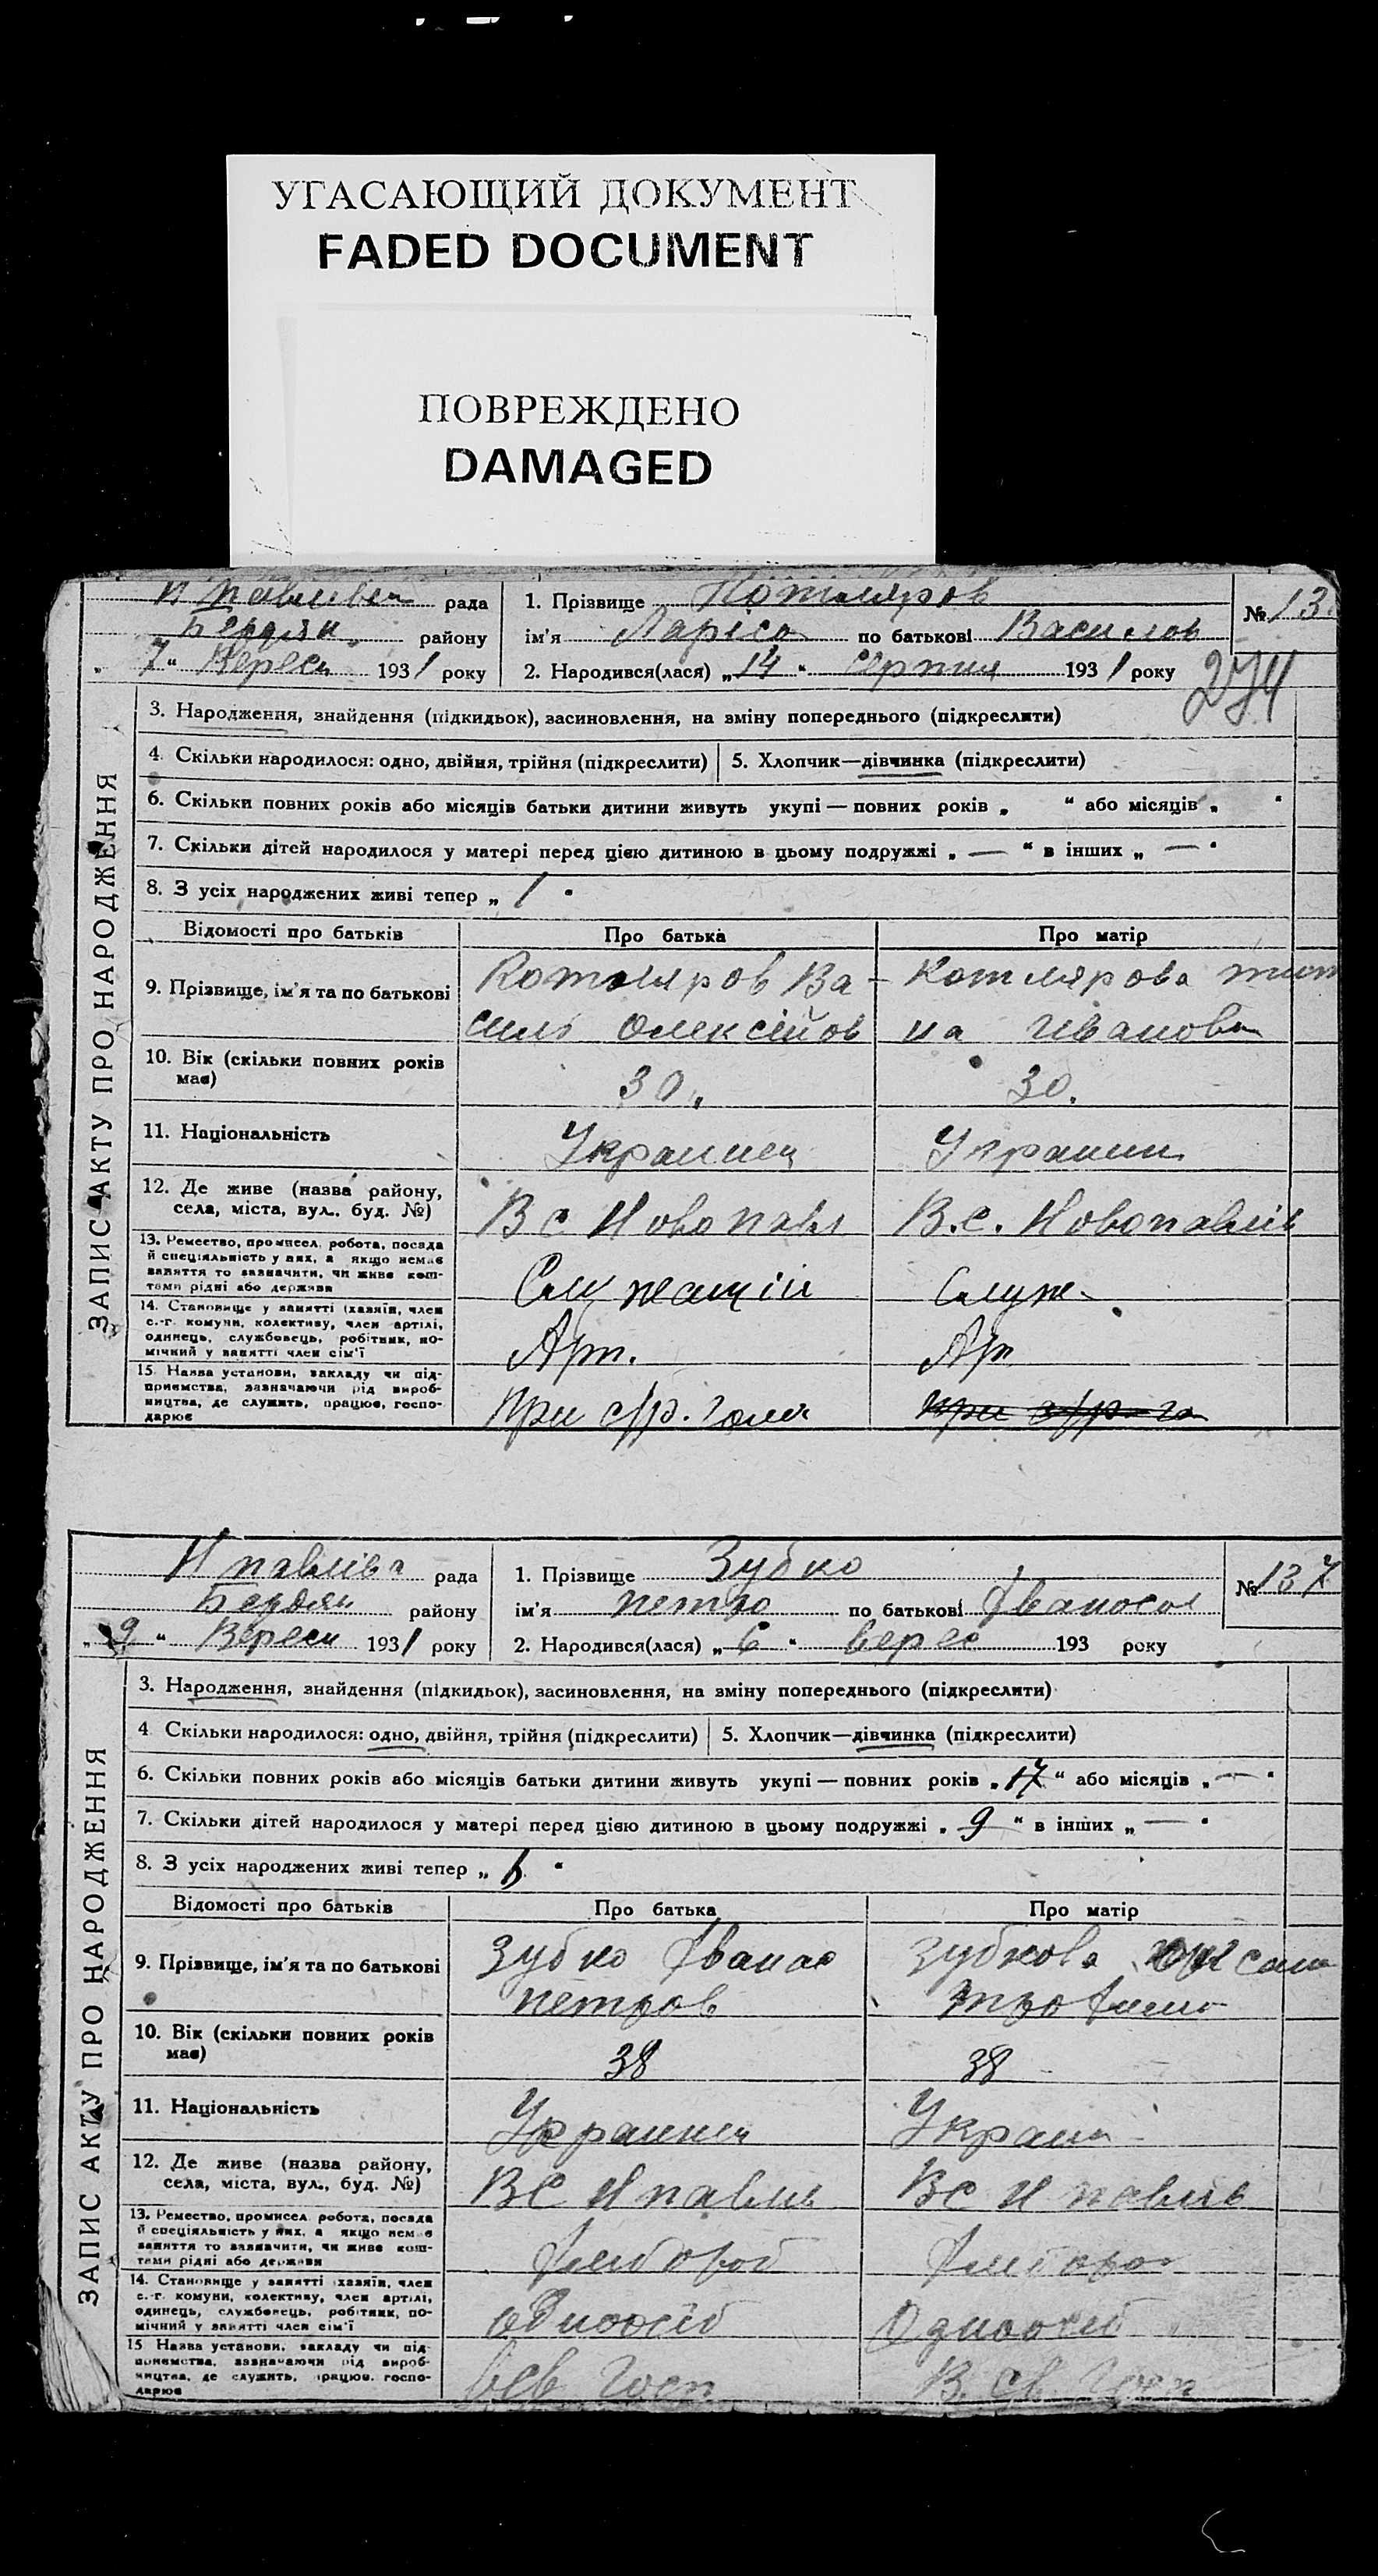 УГАСАЮЩИЙ ДОКУМЕНТ
FADED DOCUMENT
ПОВРЕЖДЕНО
DAMAGED
ЗАПИС АКТУ ПРО НАРОДЖЕННЯ
рада
Бердян району
„ 7 “ Вересн 1931 року
1. Прізвище Котляров
ім'я Ларіса по батькові Василов
2. Народився(лася) „ 14 “ Серпня 1931 року
№ 13
274
3. Народження, знайдення (підкидьок), засиновлення, на зміну попереднього (підкреслити)
4. Скільки народилося: одно, двійня, трійня (підкреслити) 5. Хлопчик—дівчинка (підкреслити)
6. Скільки повних років або місяців батьки дитини живуть укупі — повних років „ “ або місяців „ “
7. Скільки дітей народилося у матері перед цією дитиною в цьому подружжі „ — “ в інших „ — “
8. З усіх народжених живі тепер „ 1 “
Відомості про батьків Про батька Про матір
9. Прізвище, ім'я та по батькові
Котляров Ва-
силь Олексійов
Котлярова
на Іванова
10. Вік (скільки повних років має) 30. 30.
11. Національність Украинец Украин
12. Де живе (назва району, села, міста, вул., буд. №) В с Новопавл В.с. Новопавлів
13. Ремество, промисел, робота, посада
й спеціяльність у них, а якщо немає
заняття то зазначити, чи живе кош-
тами рідні або держави
Служащій Служ.
14. Становище у занятті (хазяїн, член
с.-г. комуни, колективу, член артілі,
одинець, службовець, робітник, по-
мічний у занятті член сім'ї
Арт. Арт
15. Назва установи, закладу чи під-
приємства, зазначаючи рід вироб-
ництва, де служить, працює, госпо-
дарює
При
ЗАПИС АКТУ ПРО НАРОДЖЕННЯ
Н павлівка рада
Бердян району
„ 9 “ Вересн 1931 року
1. Прізвище Зубко
ім'я Петро по батькові Іванов
2. Народився(лася) „ 6 “ Верес 193 року
№ 137
3. Народження, знайдення (підкидьок), засиновлення, на зміну попереднього (підкреслити)
4. Скільки народилося: одно, двійня, трійня (підкреслити) 5. Хлопчик—дівчинка (підкреслити)
6. Скільки повних років або місяців батьки дитини живуть укупі — повних років „ 17 “ або місяців „ — “
7. Скільки дітей народилося у матері перед цією дитиною в цьому подружжі „ 9 “ в інших „ — “
8. З усіх народжених живі тепер „ “
Відомості про батьків Про батька Про матір
9. Прізвище, ім'я та по батькові
Зубко Іван
Петров
Зубкова
10. Вік (скільки повних років має) 38 38
11. Національність Украинец Украин
12. Де живе (назва району, села, міста, вул., буд. №) В С Н павлів В С Н павлів
13. Ремество, промисел, робота, посада
й спеціяльність у них, а якщо немає
заняття то зазначити, чи живе кош-
тами рідні або держави
Хлібороб Хлібороб
14. Становище у занятті (хазяїн, член
с.-г. комуни, колективу, член артілі,
одинець, службовець, робітник, по-
мічний у занятті член сім'ї
одноосіб Одноосіб
15. Назва установи, закладу чи під-
приємства, зазначаючи рід вироб-
ництва, де служить, працює, госпо-
дарює
В св госп В. св. Госп